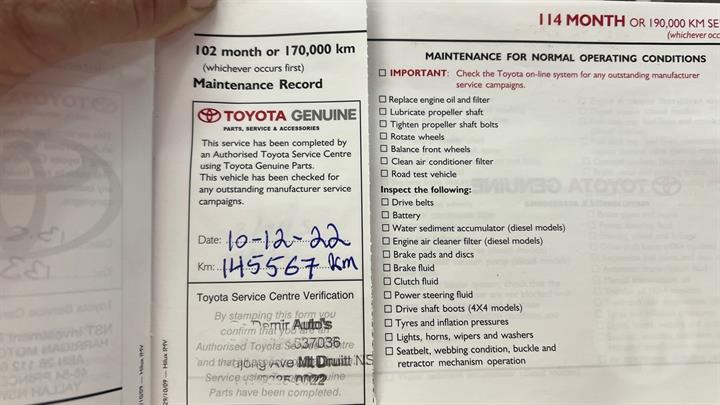 102 month or 170,000 km
(whichever occurs first)
Maintenance Record
TOYOTA GENUINE
PARTS, SERVICE & ACCESSORIES
This service has been completed by
an Authorised Toyota Service Centre
using Toyota Genuine Parts.
This vehicle has been checked for
any outstanding manufacturer service
campaigns.
Date: 10-12-22
Km: 145567 km
Toyota Service Centre Verification
By stamping this form you
confirm that you are an
Authorised Toyota Service Centre
Demir Auto's
037036
Ave Mt Druitt NS
0022
Parts have been completed.
29/10/09 — Hilux IMV
114 MONTH OR 190,000 KM SE
(whichever occ
MAINTENANCE FOR NORMAL OPERATING CONDITIONS
☐ IMPORTANT: Check the Toyota on-line system for any outstanding manufacturer
service campaigns.
☐ Replace engine oil and filter
☐ Lubricate propeller shaft
☐ Tighten propeller shaft bolts
☐ Rotate wheels
☐ Balance front wheels
☐ Clean air conditioner filter
☐ Road test vehicle
Inspect the following:
☐ Drive belts
☐ Battery
☐ Water sediment accumulator (diesel models)
☐ Engine air cleaner filter (diesel models)
☐ Brake pads and discs
☐ Brake fluid
☐ Clutch fluid
☐ Power steering fluid
☐ Drive shaft boots (4X4 models)
☐ Tyres and inflation pressures
☐ Lights, horns, wipers and washers
☐ Seatbelt, webbing condition, buckle and
retractor mechanism operation